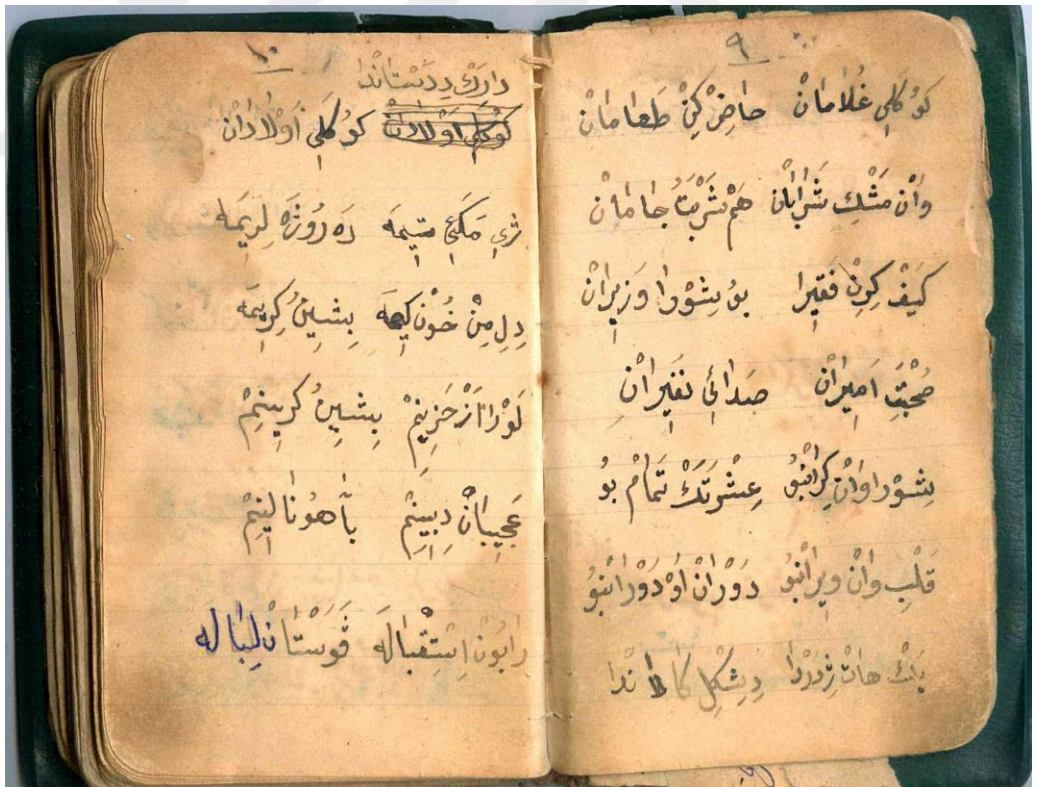 ٩
كوُ كَلِي غُلَامَانْ حاضِرْ كِنْ طَعَامَانْ
وَانْ مَشْكِ شَرَابَانْ هَمْ شَرْبَتَا جَامَانْ
كَيْف كِرِنْ فَقِيرَا بوُ بِشَوْرَا وَزِيرَانْ
صُحْبَتِ اَمِيرَانْ صَدَائِي نَفِيرَانْ
بِشَوْرَا وَانْ كِرَانْبوُ عِشْرَتَكْ تَمَامْ بوُ
قَلْبِ وَانْ وِيرَانْبوُ دَوْرَانْ اَوْ دَوْرَانْبوُ
بَنْك هَاتْ ژِدَرْدَا دِشِكْلِ كَا نْدَا
١٠
دَارَكْ دِدَسْتَانْدَا
كوُ كَلِي اَوْلَادَانْ
ژِي مَكَئِ مَتِيمَه رَه رُوژَه لِرِيمَه
دِلِ مِنْ خُونْ كِيمَه بِشِينْ كِرِيمَه
لَوْرَا اَزْ حَزِينِمْ بِشِينْ كِرِينِمْ
عَجِيبَانْ دِبِينِمْ بَآهُو نَالِينِمْ
رَابوُنْ اِسْتِقْبَالَه ڤَوَسْتَانْ لِبَالَه